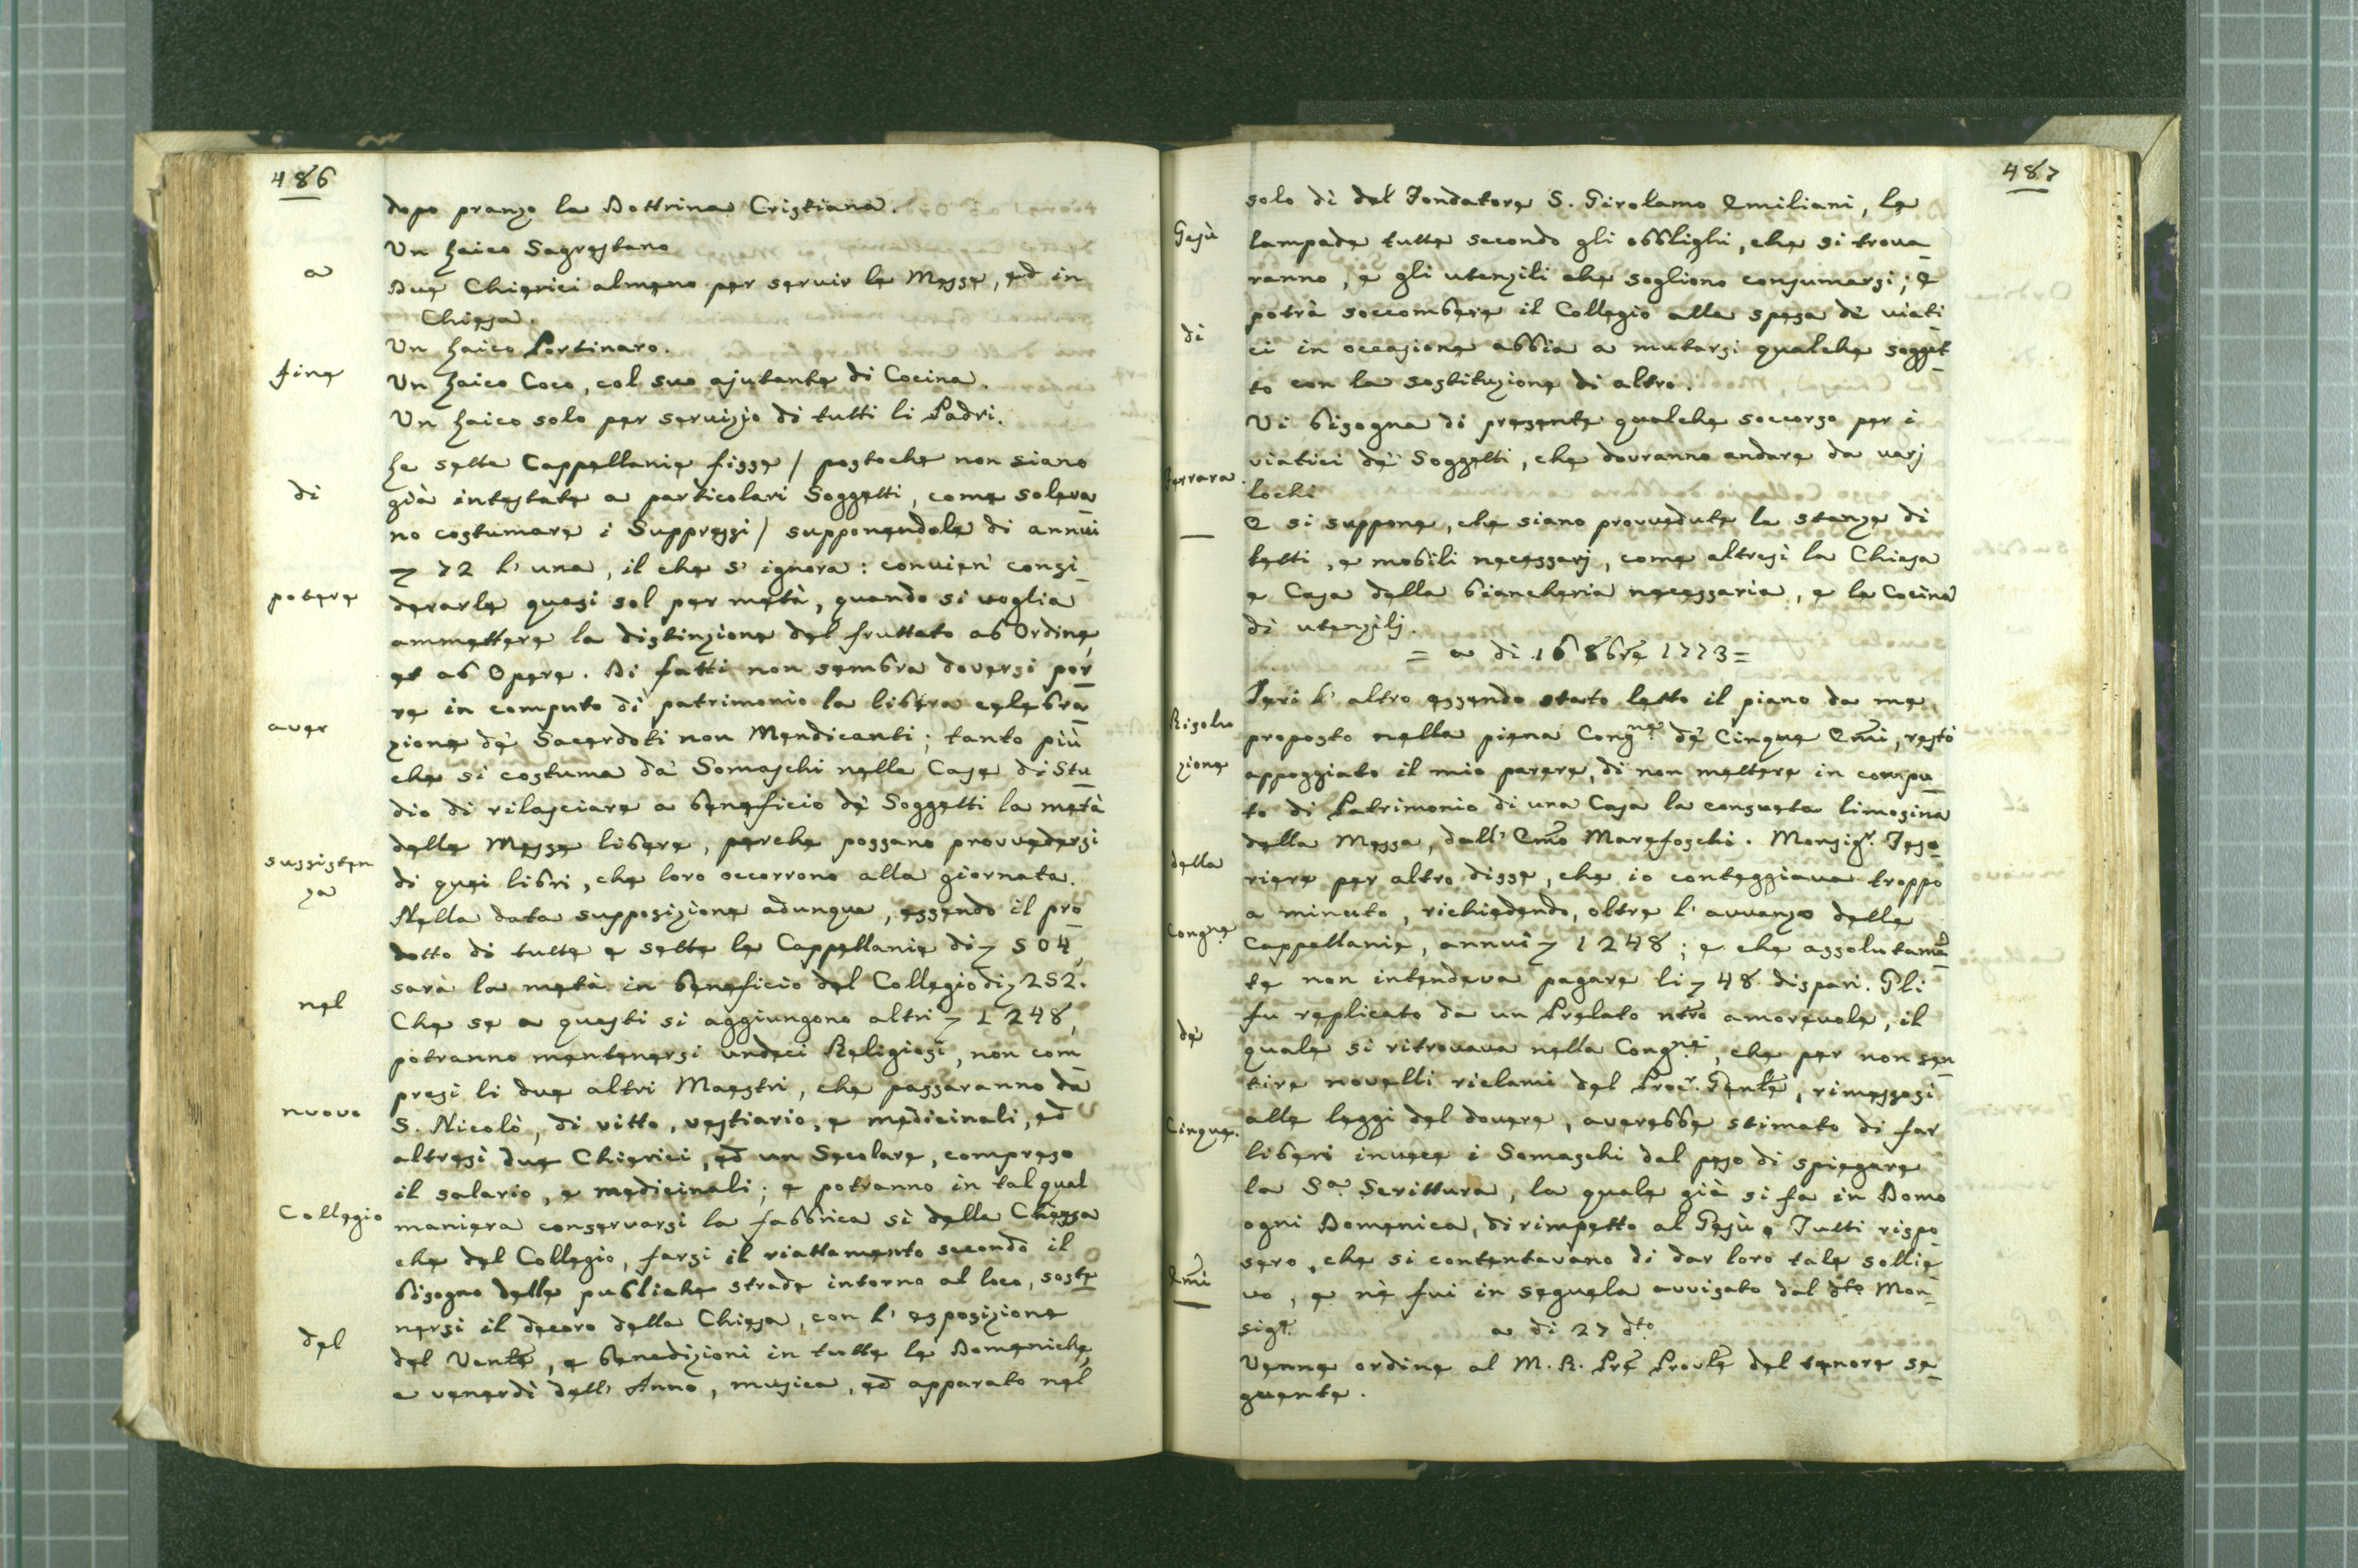 486
dopo pranzo la Dottrina Cristiana.
Un Laico Sagrestano
Due Chierici almeno per servir le Messe, ed in
Chiesa.
Un Laico Portinaro.
Un Laico Coco, col suo ajutante di Cocina.
Un Laico solo per servizio di tutti li Padri.
Le sette Cappellanie fisse / postoche non siano
già intestate a particolari Soggetti, come soleva
no costumare i Soppressi / supponendole di annui
72 l' una, il che s' ignora: convien' consi
derarle quasi sol per metà, quando si voglia
ammettere la distinzione del fruttato ab Ordine,
et ab Opere. Di fatti non sembra doversi por
re in computo di patrimonio la libera celebra
zione de' Sacerdoti non Mendicanti; tanto più
che si costuma da' Somaschi nelle Case di Stu
dio di rilasciare a beneficio de' Soggetti la metà
delle Messe libere, perche possano provvedersi
di quei libri, che loro occorrono alla giornata.
Nella data supposizione adunque, essendo il pro
dotto di tutte e sette le Cappellanie di 504,
sarà la metà in beneficio del Collegio di 252.
Che se a questi si aggiungono altri 1248,
potranno mantenersi undeci Religiosi, non com
presi li due altri Maestri, che passaranno da
S. Nicolò, di vitto, vestiario, e medicinali, ed
altresì due Chierici, ed un Secolare, compreso
il salario, e medicinali; e potranno in tal qual
maniera conservarsi la fabbrica sì della Chiesa
che del Collegio, farsi il riattamento secondo il
bisogno delle publiche strade intorno al loco, soste
nersi il decoro della Chiesa, con l' esposizione
del Venle, e benedizioni in tutte le Domeniche,
e venerdì dell' Anno, musica, ed apparato nel
a
fine
di
potere
aver
sussisten
za
nel
nuovo
Collegio
del
487
Gesù
di
Ferrara.
solo dì del Fondatore S. Girolamo Emiliani, le
lampade tutte secondo gli obblighi, che si trova
ranno, e gli utensili che sogliono consumarsi; e
potrà soccombere il Collegio alla spesa de' viati
ci in occasione abbia a mutarsi qualche sogget
to con la sostituzione di altro.
Vi bisogna di presente qualche soccorso per i
viatici de' Soggetti, che dovranno andare da varj
lochi
E si suppone, che siano provvedute le stanze di
letti, e mobili necessarj, come altresì la Chiesa
e Casa della biancheria necessaria, e la Cocina
di utensilj.
= a di 16 8bre 1773 =
Jeri l' altro essendo stato letto il piano da me
proposto nella piena Congne de' Cinque Emi, restò
appoggiato il mio parere, di non mettere in compu
to di Patrimonio di una Casa la consueta limosina
della Messa, dall' Emo Marefoschi. Monsigr. Teso
riere per altro disse, che io conteggiava troppo
a minuto, richiedendo, oltre l' avvanzo delle
Cappellanie, annui 1248; e che assolutamen
te non intendeva pagare li 48 dispari. Gli
fu replicato da un Prelato nro amorevole, il
quale si ritrovava nella Congne, che per non sen
tire novelli riclami del Procr. Genle, rimessosi
alle leggi del dovere, averebbe stimato di far
liberi invece i Somaschi dal peso di spiegare
la Sa. Scrittura, la quale già si fa in Domo
ogni Domenica, dirimpetto al Gesù e Tutti rispo
sero, che si contentavano di dar loro tale sollie
vo, e nè fui in sequela avvisato dal dto Mon
sigr.
a di 27 dto
Venne ordine al M. R. Pre Provle del tenore se
guente.
Risolu
zione
della
Congne
de'
Cinque
Emi